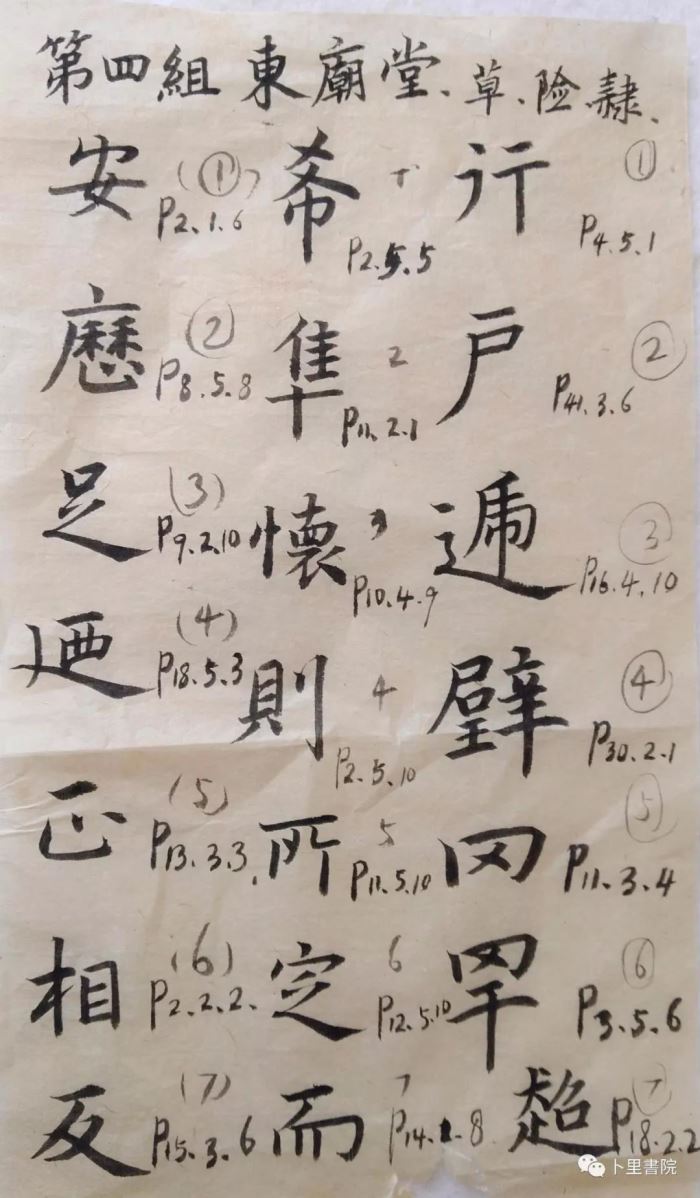 第四組 東廟堂、草、险、隸、
安 (①) P2.1.6 希 1 P2.5.5 行 ① P4.5.1
歷 ② P8.5.8 隼 2 P11.2.1 戸 ② P41.3.6
足 (3) P9.2.10 懷 3 P10.4.9 遞 ③ P16.4.10
迺 (4) P18.5.3 則 4 P2.5.10 壁 ④ P30.2.1
正 (5) P13.3.3. 所 5 P11.5.10 罔 ⑤ P11.3.4
相 (6) P2.2.2. 定 6 P12.5.10 罕 ⑥ P3.5.6
反 (7) P15.3.6 而 7 P14.2.8 趋 ⑦ P18.2.2
卜里書院